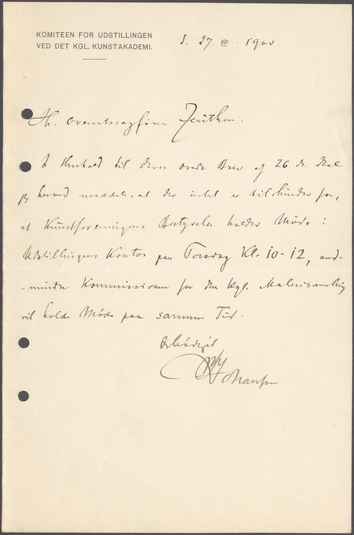 KOMITEEN FOR UDSTILLINGEN
VED DET KGL. KUNSTAKADEMI.
d. 27 1900
Hr. Zeuthen.
I Henhold til Deres Brev af 26 ds. skal
jeg herved meddele, at der intet er til hinder for,
at Kunstforeningens Bestyrelse holder Møde i
Udstillingens Kontor paa Torsdag Kl. 10-12, med-
mindre Kommissionen for den Kgl. Malerisamling
vil holde Møde paa samme Tid.
Ærbødigst
Johansen